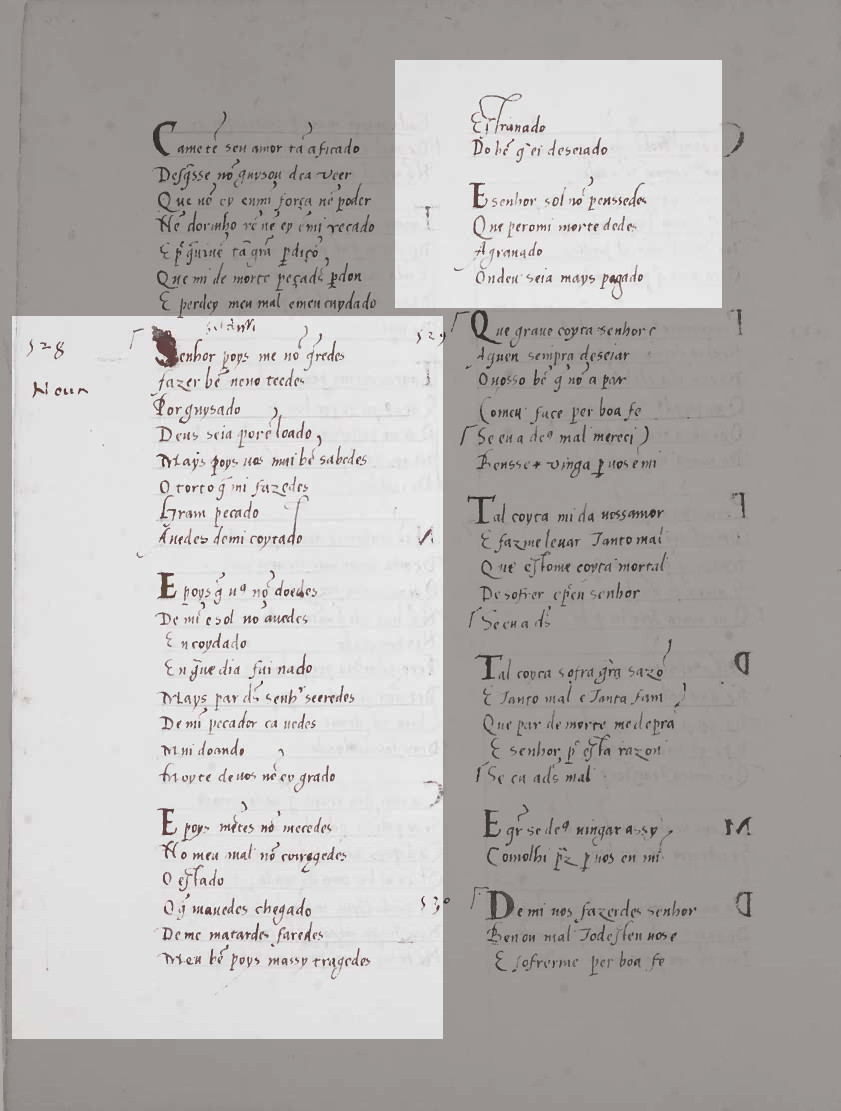 Camete seu amor tā aficado
Desq̄sse nō guysou dea veer
Que nē ey enmi força nē poder
Nē dormho rē nē ey emi recado
E p̄ q̄ uiuē tā grā p̄diçō
Que mi de morte peçads p̄don
E perdey meu mal emeu cuydado
528
Senhor poys me nō q̄redes
fazer bē neno teedes
Por guysado
Deus seia porē loado
Mays poys uos mui bē sabedes
O torto q̄ mi fazedes
Gram pecado
Auedes demi coytado
E poys q̄ uꝯ nō doedes
De mi e sol nō auedes
En coydado
En gūe dia fui nado
Mays par ds senhr seeredes
De mi pecador ca uedes
Mui doando
Moyte deuos nē ey grado
E poys mētes nō mecedes
No meu mal nō coiregedes
O estado
O q̄ mauedes chegado
Deme matardes faredes
Meu bē poys massy tragedes
Estranado
Do bē q̄ ei deseiado
E senhor sol nō penssedes
Que peromi morte dedes
Agranado
Ondeu seia mays pagado
529
Que graue coyta senhor e
Aquen sempra deseiar
O uosso bē q̄ nō a par
Comeu face per boa fe
Se eu a deꝯ mal mereci
Bensse vinga p̄ uos emi
Tal coyta mi da uossamor
E fazme leuar Tanto mal
Que estome coyta mortal
De sofrer epēn senhor
Se eu a ds
Tal coyta sofra grā sazō
E Tanto mal e Tanta fam
Que par de morte medeprā
E senhor p̄ esta razon
Se eu ads mal
E qr̄ se deꝯ uingar assy
Comolhi pr̄z p̄ uos en mi
530
De mi uos fazerdes senhor
Ben ou mal Todesten uose
E sofrerme per boa fe